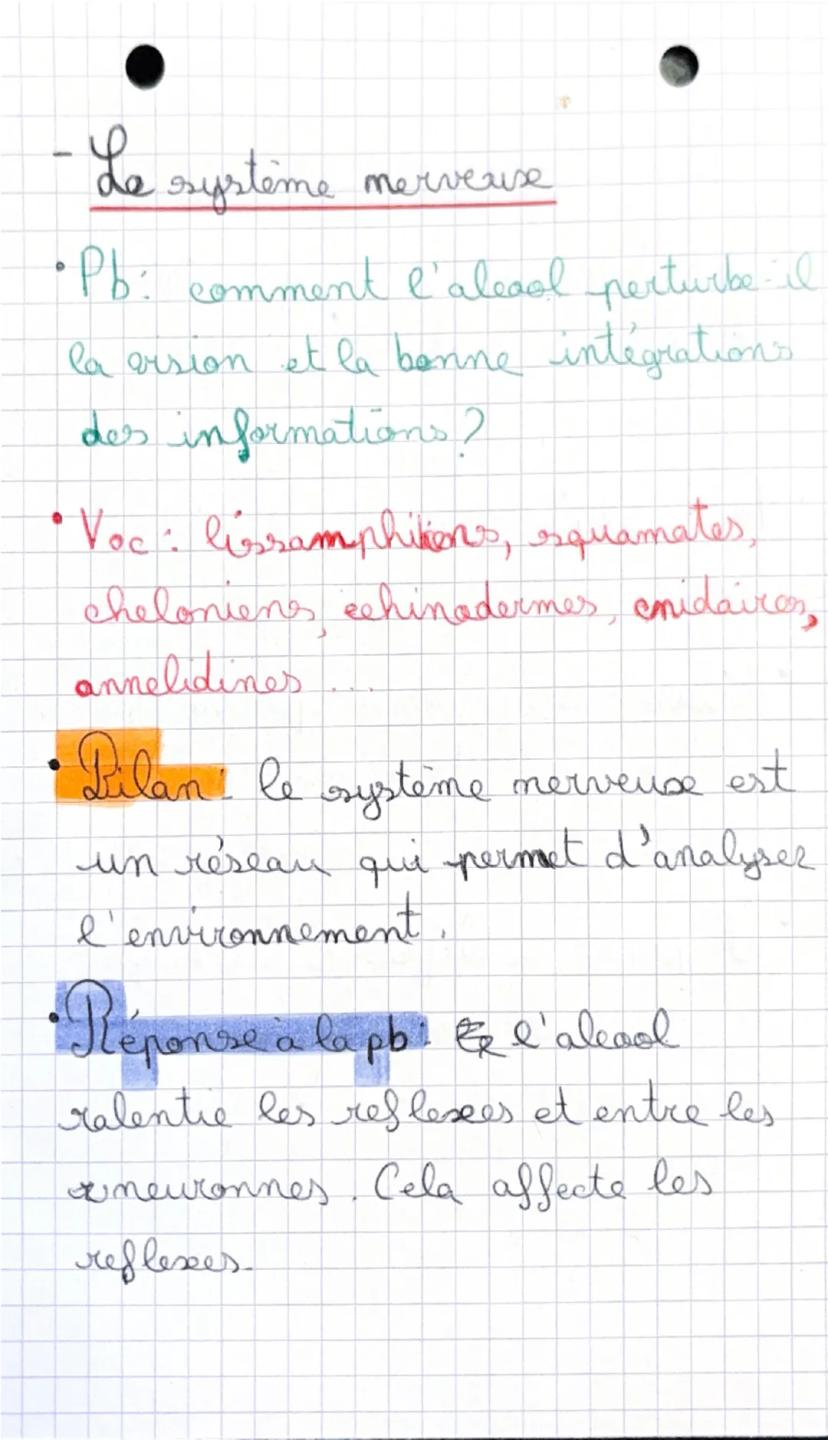 - Le système nerveux
• Pb : comment l'alcool perturbe-il
la vision et la bonne intégrations
des informations ?
• Voc : lissamphibiens, squamates,
cheloniens, echinodermes, cnidaires,
annelidines ...
• Bilan : le système nerveux est
un réseau qui permet d'analyser
l'environnement.
• Réponse à la pb : l'alcool
ralentie les reflexes et entre les
neuronnes. Cela affecte les
reflexes.